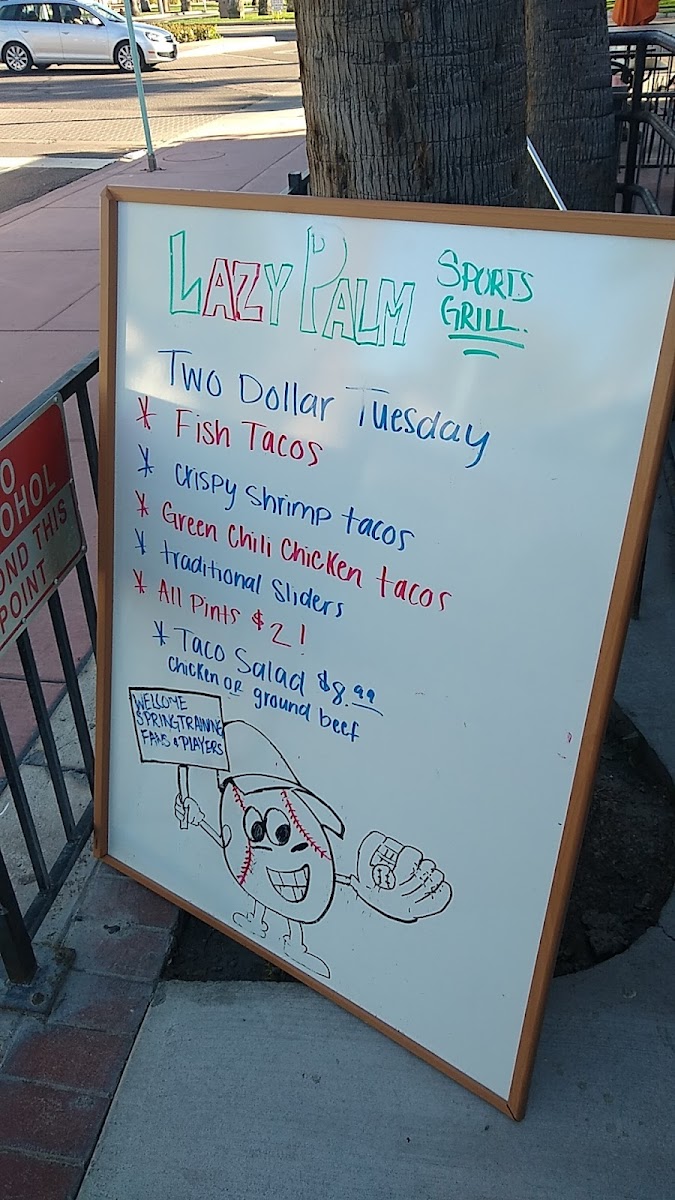 LAZY PALM SPORTS
GRILL.
Two Dollar Tuesday
* Fish Tacos
* Crispy Shrimp tacos
* Green Chili Chicken tacos
* traditional Sliders
* All Pints $2!
* Taco Salad $8.99
Chicken OR ground beef
WELCOME
SPRING TRAINING
FANS & PLAYERS
O
OHOL
OND THIS
POINT